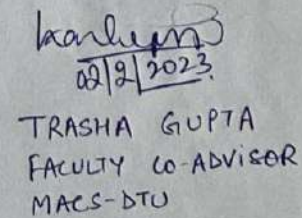 02/2/2023.
TRASHA GUPTA
FACULTY CO-ADVISOR
MACS-DTU